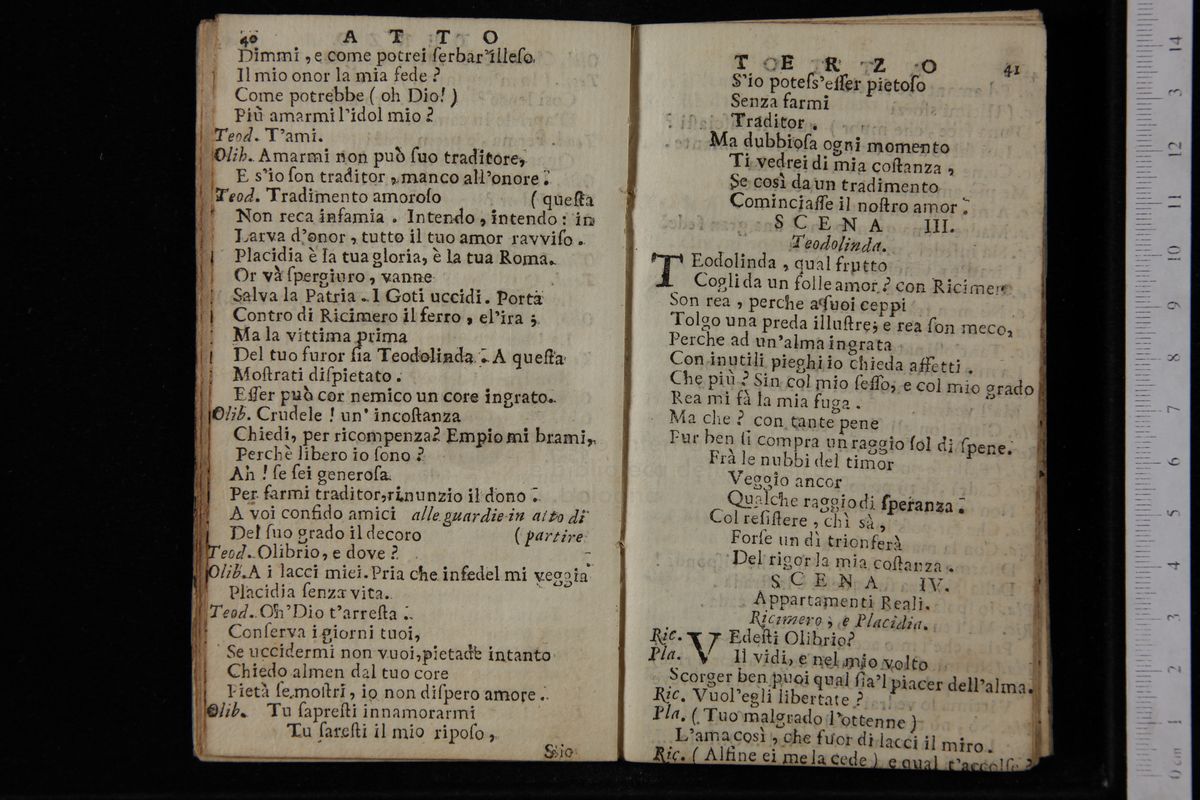 40 A T T O
Dimmi, e come potrei ſerbar'illeſo
Il mio onor la mia fede?
Come potrebbe (oh Dio!)
Più amarmi l'idol mio?
Teod. T'ami.
Olib. Amarmi non può ſuo traditore,
E s'io ſon traditor, manco all'onore.
Teod. Tradimento amoroſo (queſta
Non reca infamia. Intendo, intendo: in
Larva d'onor, tutto il tuo amor ravviſo.
Placidia è la tua gloria, è la tua Roma.
Or và ſpergiuro, vanne
Salva la Patria. I Goti uccidi. Porta
Contro di Ricimero il ferro, el'ira;
Ma la vittima prima
Del tuo furor ſia Teodolinda. A queſta
Moſtrati diſpietato.
Eſſer può cor nemico un core ingrato.
Olib. Crudele! un' incoſtanza
Chiedi, per ricompenza? Empio mi brami,
Perchè libero io ſono?
Ah! ſe ſei generoſa
Per farmi traditor, rinunzio il dono.
A voi confido amici alle guardie in atto di
Del ſuo grado il decoro (partire
Teod. Olibrio, e dove?
Olib. A i lacci miei. Pria che infedel mi veggia
Placidia ſenza vita.
Teod. Oh'Dio t'arreſta.
Conſerva i giorni tuoi,
Se uccidermi non vuoi, pietade intanto
Chiedo almen dal tuo core
Pietà ſe moſtri, io non diſpero amore.
Olib. Tu ſapreſti innamorarmi
Tu ſareſti il mio ripoſo,
S'io
T E R Z O 41
S'io poteſs'eſſer pietoſo
Senza farmi
Traditor.
Ma dubbioſa ogni momento
Ti vedrei di mia coſtanza,
Se così da un tradimento
Cominciaſſe il noſtro amor.
S C E N A III.
Teodolinda.
TEodolinda, qual frutto
Cogli da un folle amor? con Ricimero
Son rea, perche a' ſuoi ceppi
Tolgo una preda illuſtre; e rea ſon meco,
Perche ad un'alma ingrata
Con inutili pieghi io chieda affetti.
Che più? Sin col mio ſeſſo, e col mio grado
Rea mi fà la mia fuga.
Ma che? con tante pene
Pur ben ſi compra un raggio ſol di ſpene.
Frà le nubbi del timor
Veggio ancor
Qualche raggio di ſperanza.
Col reſiſtere, chì sà,
Forſe un dì trionferà
Del rigor la mia coſtanza.
S C E N A IV.
Appartamenti Reali.
Ricimero, e Placidia.
Ric. VEdeſti Olibrio?
Pla. Il vidi, e nel mio volto
Scorger ben puoi qual ſia'l piacer dell'alma.
Ric. Vuol'egli libertate?
Pla. (Tuo malgrado l'ottenne)
L'ama così, che fuor di lacci il miro.
Ric. (Alfine ei me la cede) e qual t'accolſe?